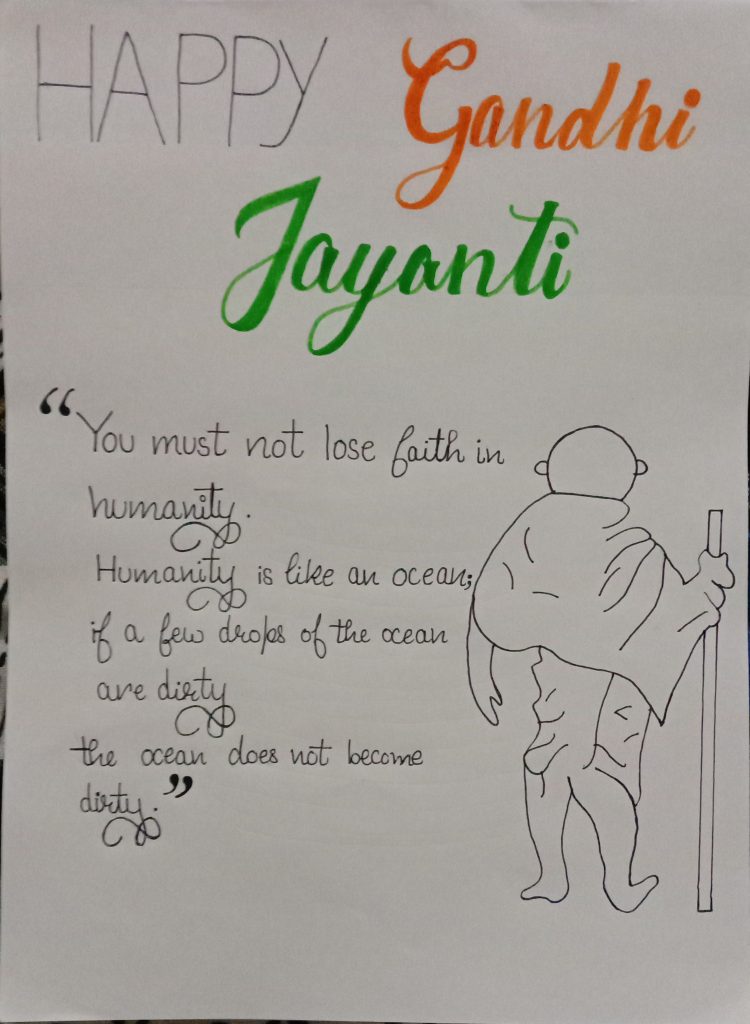 HAPPY Gandhi
Jayanti
“You must not lose faith in
humanity.
Humanity is like an ocean;
if a few drops of the ocean
are dirty
the ocean does not become
dirty.”